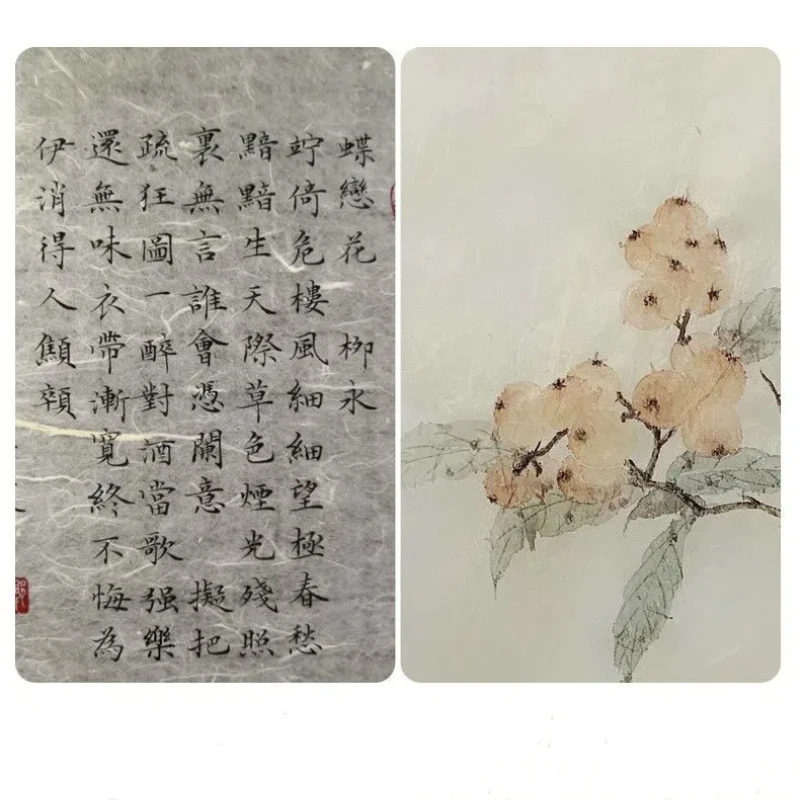 蝶戀花 柳永
竚倚危樓風細細望極春愁
黯黯生天際草色煙光殘照
裏無言誰會憑闌意 擬把
疏狂圖一醉對酒當歌强樂
還無味衣帶漸寬終不悔為
伊消得人顦顇